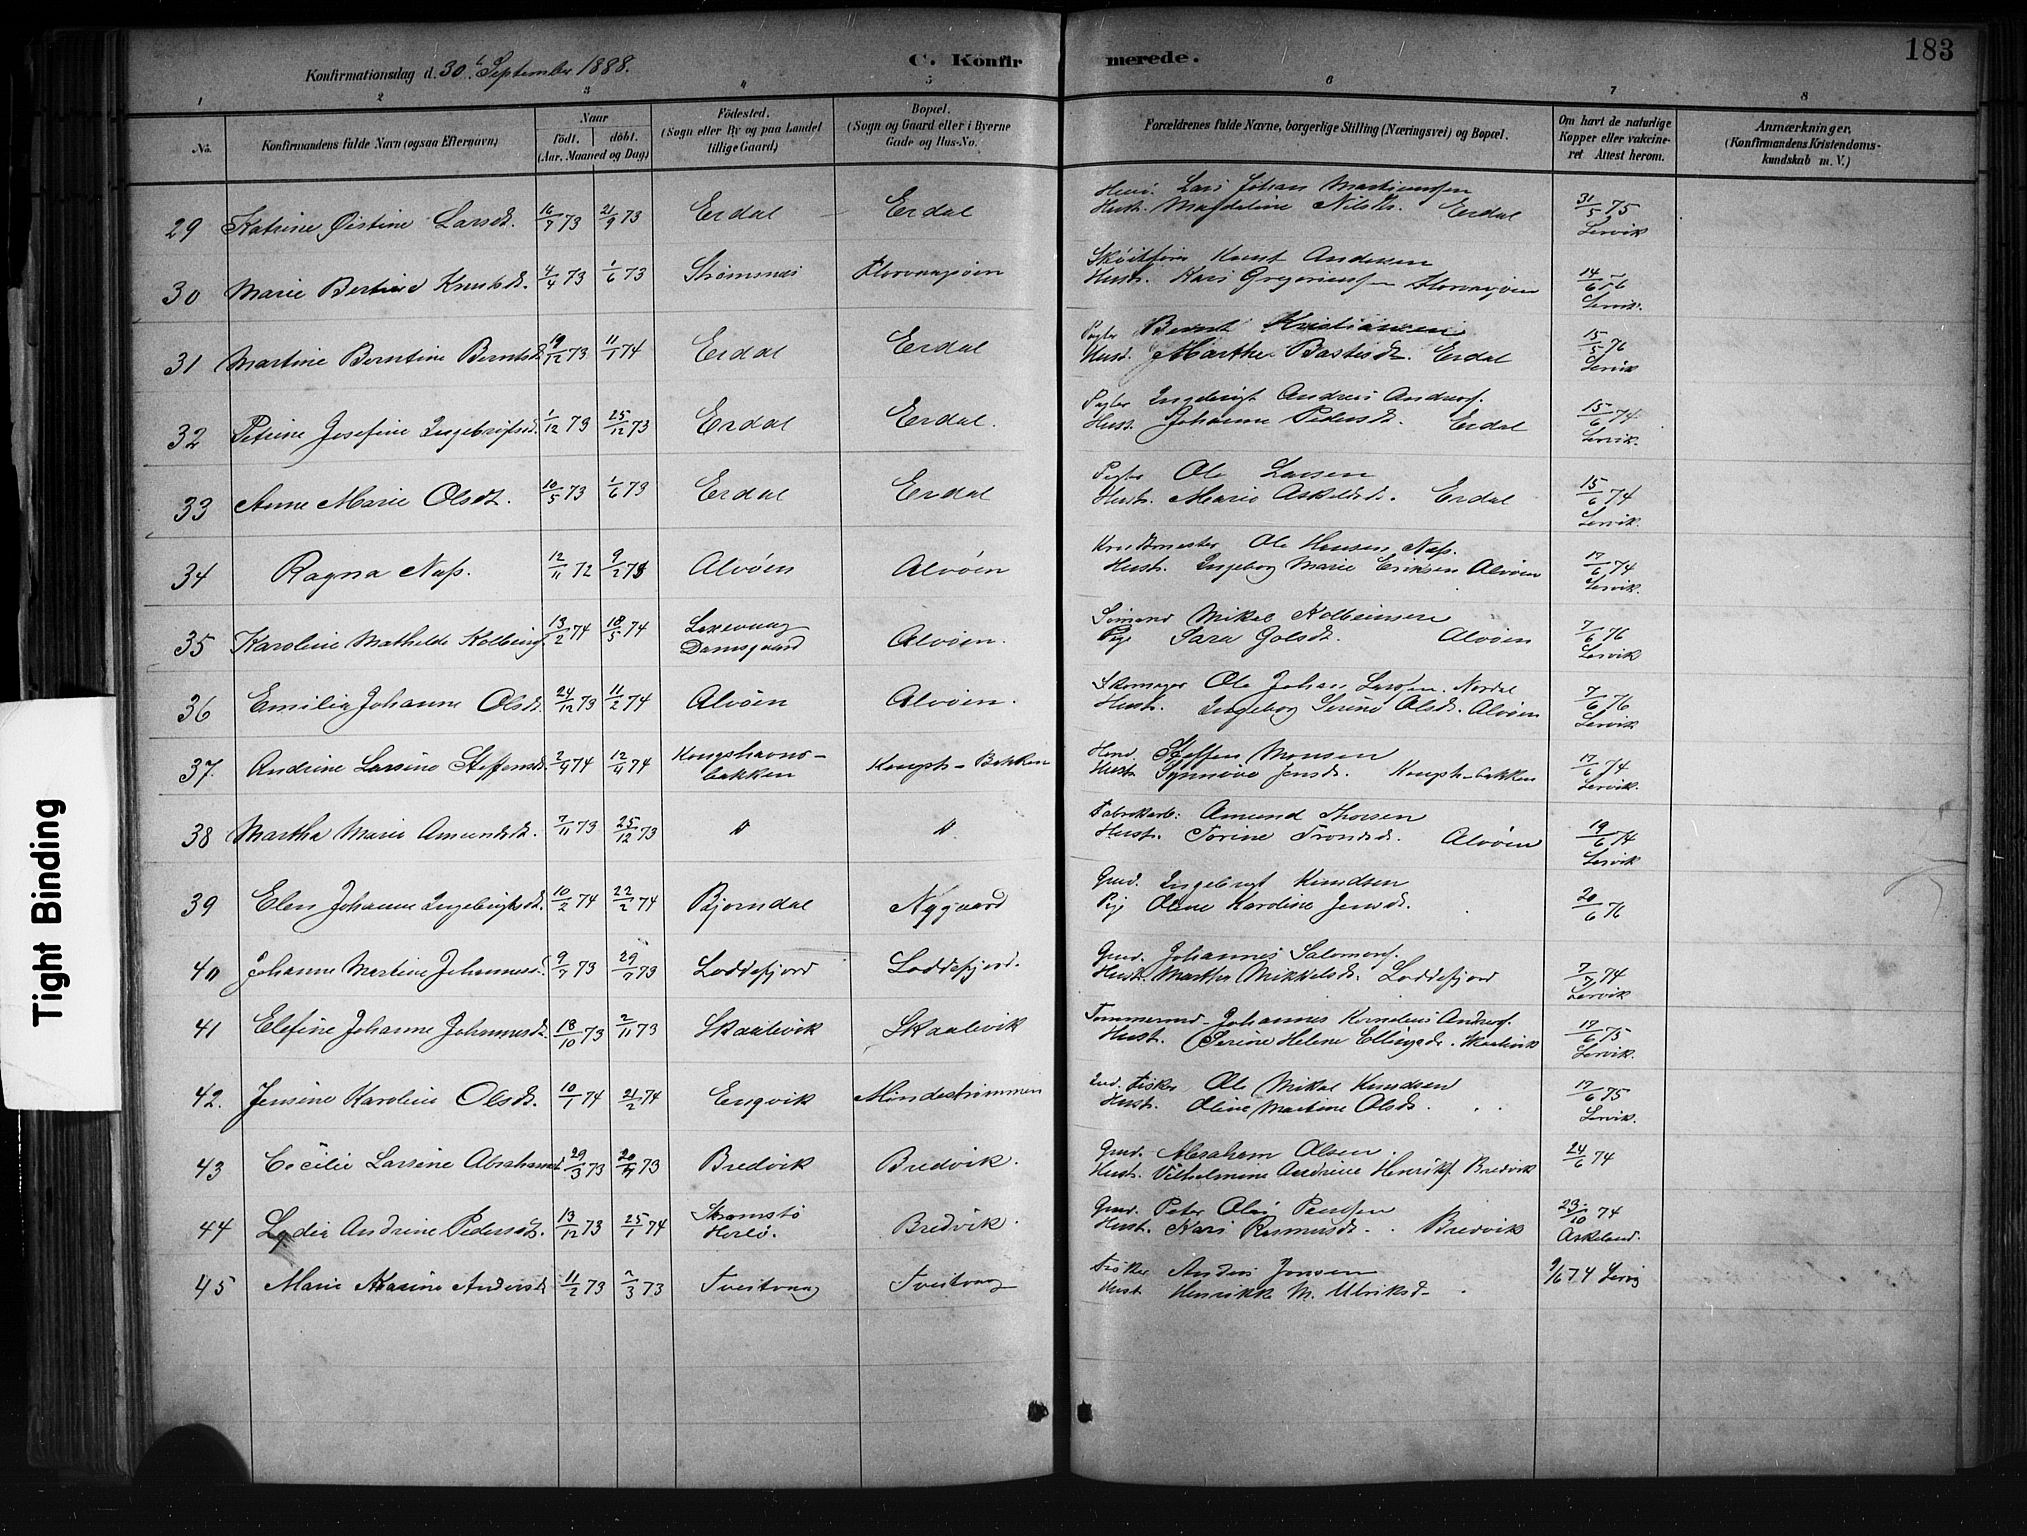 183
Konfirmationsdag d. 30 September 1888.
C. Konfirmerede.
1 2 3 4 5 6 7 8
No.
Konfirmandens fulde Navn (ogsaa Efternavn)
Naar
födt. döbt.
(Aar, Maaned og Dag)
Födested.
(Sogn eller By og paa Landet
tillige Gaard)
Bopæl.
(Sogn og Gaard eller i Byerne
Gade og Hus-No.
Forældrenes fulde Navne, borgerlige Stilling (Næringsvei) og Bopæl.
Om havt de naturlige
Kopper eller vakcine-
ret Attest herom.
Anmærkninger.
(Konfirmandens Kristendoms-
kundskab m. V.)
29 Katrine Öistine Larsdt. 16/7 73 21/9 73 Erdal Erdal Lars Johan Martinussen
Hust. Magdeline Nilsdt. Erdal 31/5 75
Lervik
30 Marie Bertine Knutsdt. 4/4 73 1/6 73 Strömsnes Knut Andersen
Hust. Kari 14/6
Lervik
31 Martine Berntine Berntsdt. 19/12 73 11/1 74 Erdal Erdal Bernt Kristiansen
Hust. Marthe Erdal 15/5 76
Lervik
32 Petrine Josefine Ingebrigtsdt. 1/12 73 25/12 73 Erdal Erdal. Ingebrigt Andreas Anders.
Hust. Johanne Pedersdt. Erdal 15/6 74
Lervik.
33 Anne Marie Olsdt. 10/5 73 1/6 73 Erdal Erdal Ole Larsen
Hust. Marie Askildsdt. Erdal 15/6 74
Lervik.
34 Ragna Næss. 12/11 72 9/2 73 Alvöen Alvöen Ole Hansen Næss.
Hust. Ingeborg Marie Eriksen Alvöen 17/6 74
Lervik.
35 Karoline Mathilde Kolbeins. 13/2 74 18/5 74 Laxevaag
Damsgaard Alvöen. Sömand Mikal Kolbeinsen
Pige Sara Alvöen 7/6 76
Lervik
36 Emilie Johanne Olsdt. 24/12 73 11/2 74 Alvöen Alvöen. Skomager Ole Johan Larsen Nordal
Hust. Ingeborg Serine Olsdt. Alvöen 7/6 76
Lervik
37. Andrine Larsine Steffensdt. 2/4 74 12/4 74 Kongshavns-
bakken Kongsh-Bakken Steffen Monsen
Hust. Synnöve Jensdt. Kongsh-bakken 17/6 74
Lervik.
38 Martha Marie Amundsdt. 7/11 73 25/12 73 " " Fabrikarb: Amund Thorsen
Hust. Torine Trondsdt. Alvöen 19/6 74
Lervik
39 Elen Johanne Ingebrigtsdt. 10/2 74 22/2 74 Bjorndal Nygaard Grd. Ingebrigt Knudsen
Pig. Oline Karoline Jensdt. 20/6 76
40 Johanne Martine Johannesd. 9/7 73 29/7 73 Loddefjord Loddefjord. Grd. Johannes Salomons.
Hust. Martha Mikkelsdt. Loddefjord 7/7 74
Lervik
41 Elefine Johanne Johannesdt. 18/10 73 2/11 73 Skaalevik Skaalevik Tömmermd. Johannes Kornelius Anders.
Hust. Serine Helene Ellingsdt. Skaalevik 17/6 75
Lervik.
42. Jensine Karoline Olsdt. 10/1 74 21/2 74 Engvik Mindeströmmen Ind. Fisker Ole Mikal Knudsen
Hust. Oline Martine Olsdt. 17/6 75
Lervik.
43 Cecilie Larsine Abrahamsdt. 29/3 73 20/4 73 Bredvik Bredvik. Grd. Abraham Olsen.
Hust. Vilhelmine Andrine Henriks. Bredvik 24/6 74
44 Lydia Andrine Pedersdt. 13/12 73 25/1 74 Stromstö
Herlö. Bredvik. Grd. Peter Olai
Hust. Kari Rasmusdt. Bredvik 23/10 74
Askeland.
45 Marie Andersdt. 11/2 73 2/3 73 Tveitvaag Tveitvaag Fisker Anders Jensen
Hust. Henrikke M. Ulriksdt. 9/6 74 Lervig
Tight Binding